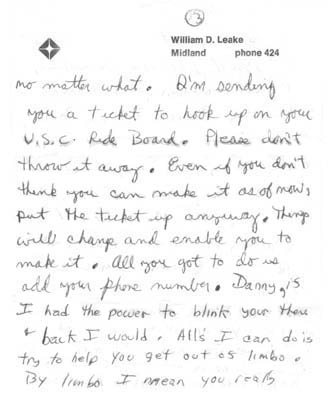 3
William D. Leake
Midland phone 424
no matter what. I'm sending
you a ticket to hook up on your
U.S.C. Ride Board. Please don't
throw it away. Even if you don't
think you can make it as of now,
put the ticket up anyway. Things
will change and enable you to
make it. All you got to do is
add your phone number. Danny, is
I had the power to blink your there
& back I would. Alls I can do is
try to help you get out of limbo.
By limbo I mean you really